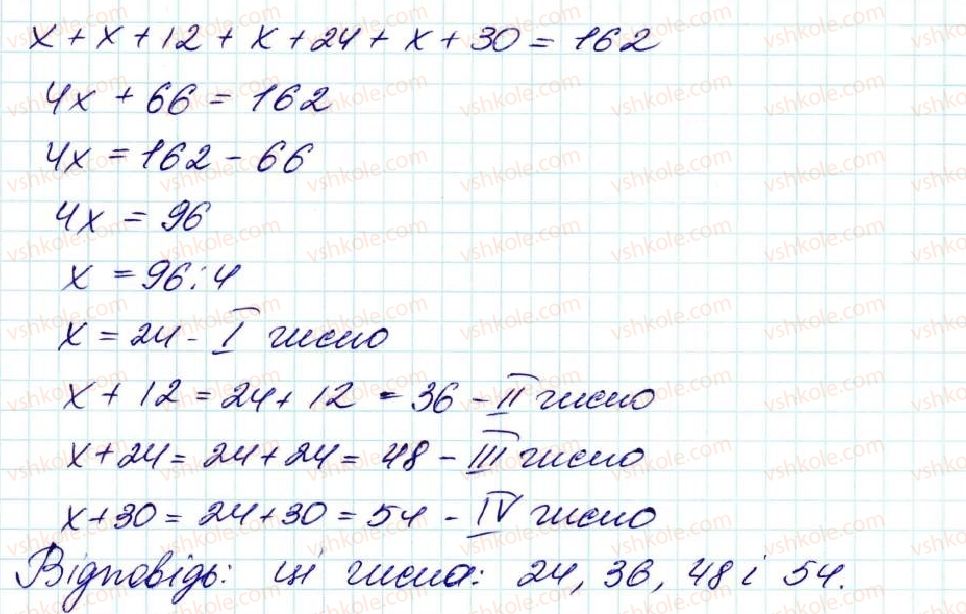 x + x + 12 + x + 24 + x + 30 = 162
4x + 66 = 162
4x = 162 - 66
4x = 96
x = 96 : 4
x = 24 - I число
x + 12 = 24 + 12 = 36 - II число
x + 24 = 24 + 24 = 48 - III число
x + 30 = 24 + 30 = 54 - IV число
Відповідь: ці числа: 24, 36, 48 і 54.
vshkole.com